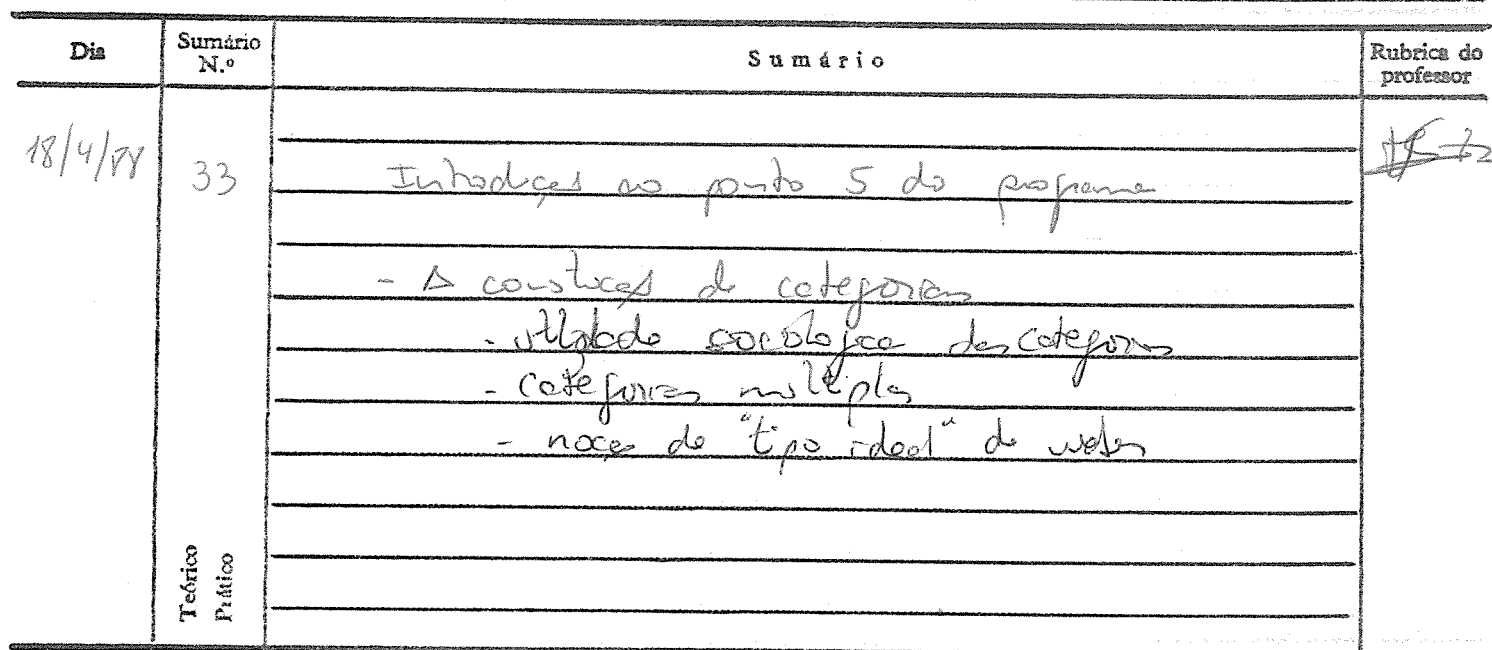 Dia
Sumário N.º
Sumário
Rubrica do professor
18/4/88
33
Introdução ao ponto 5 do programa
- A construção de categorias
- utilidade sociológica das categorias
- categorias múltiplas
- noção de "tipo ideal" de Weber
Teórico
Prático